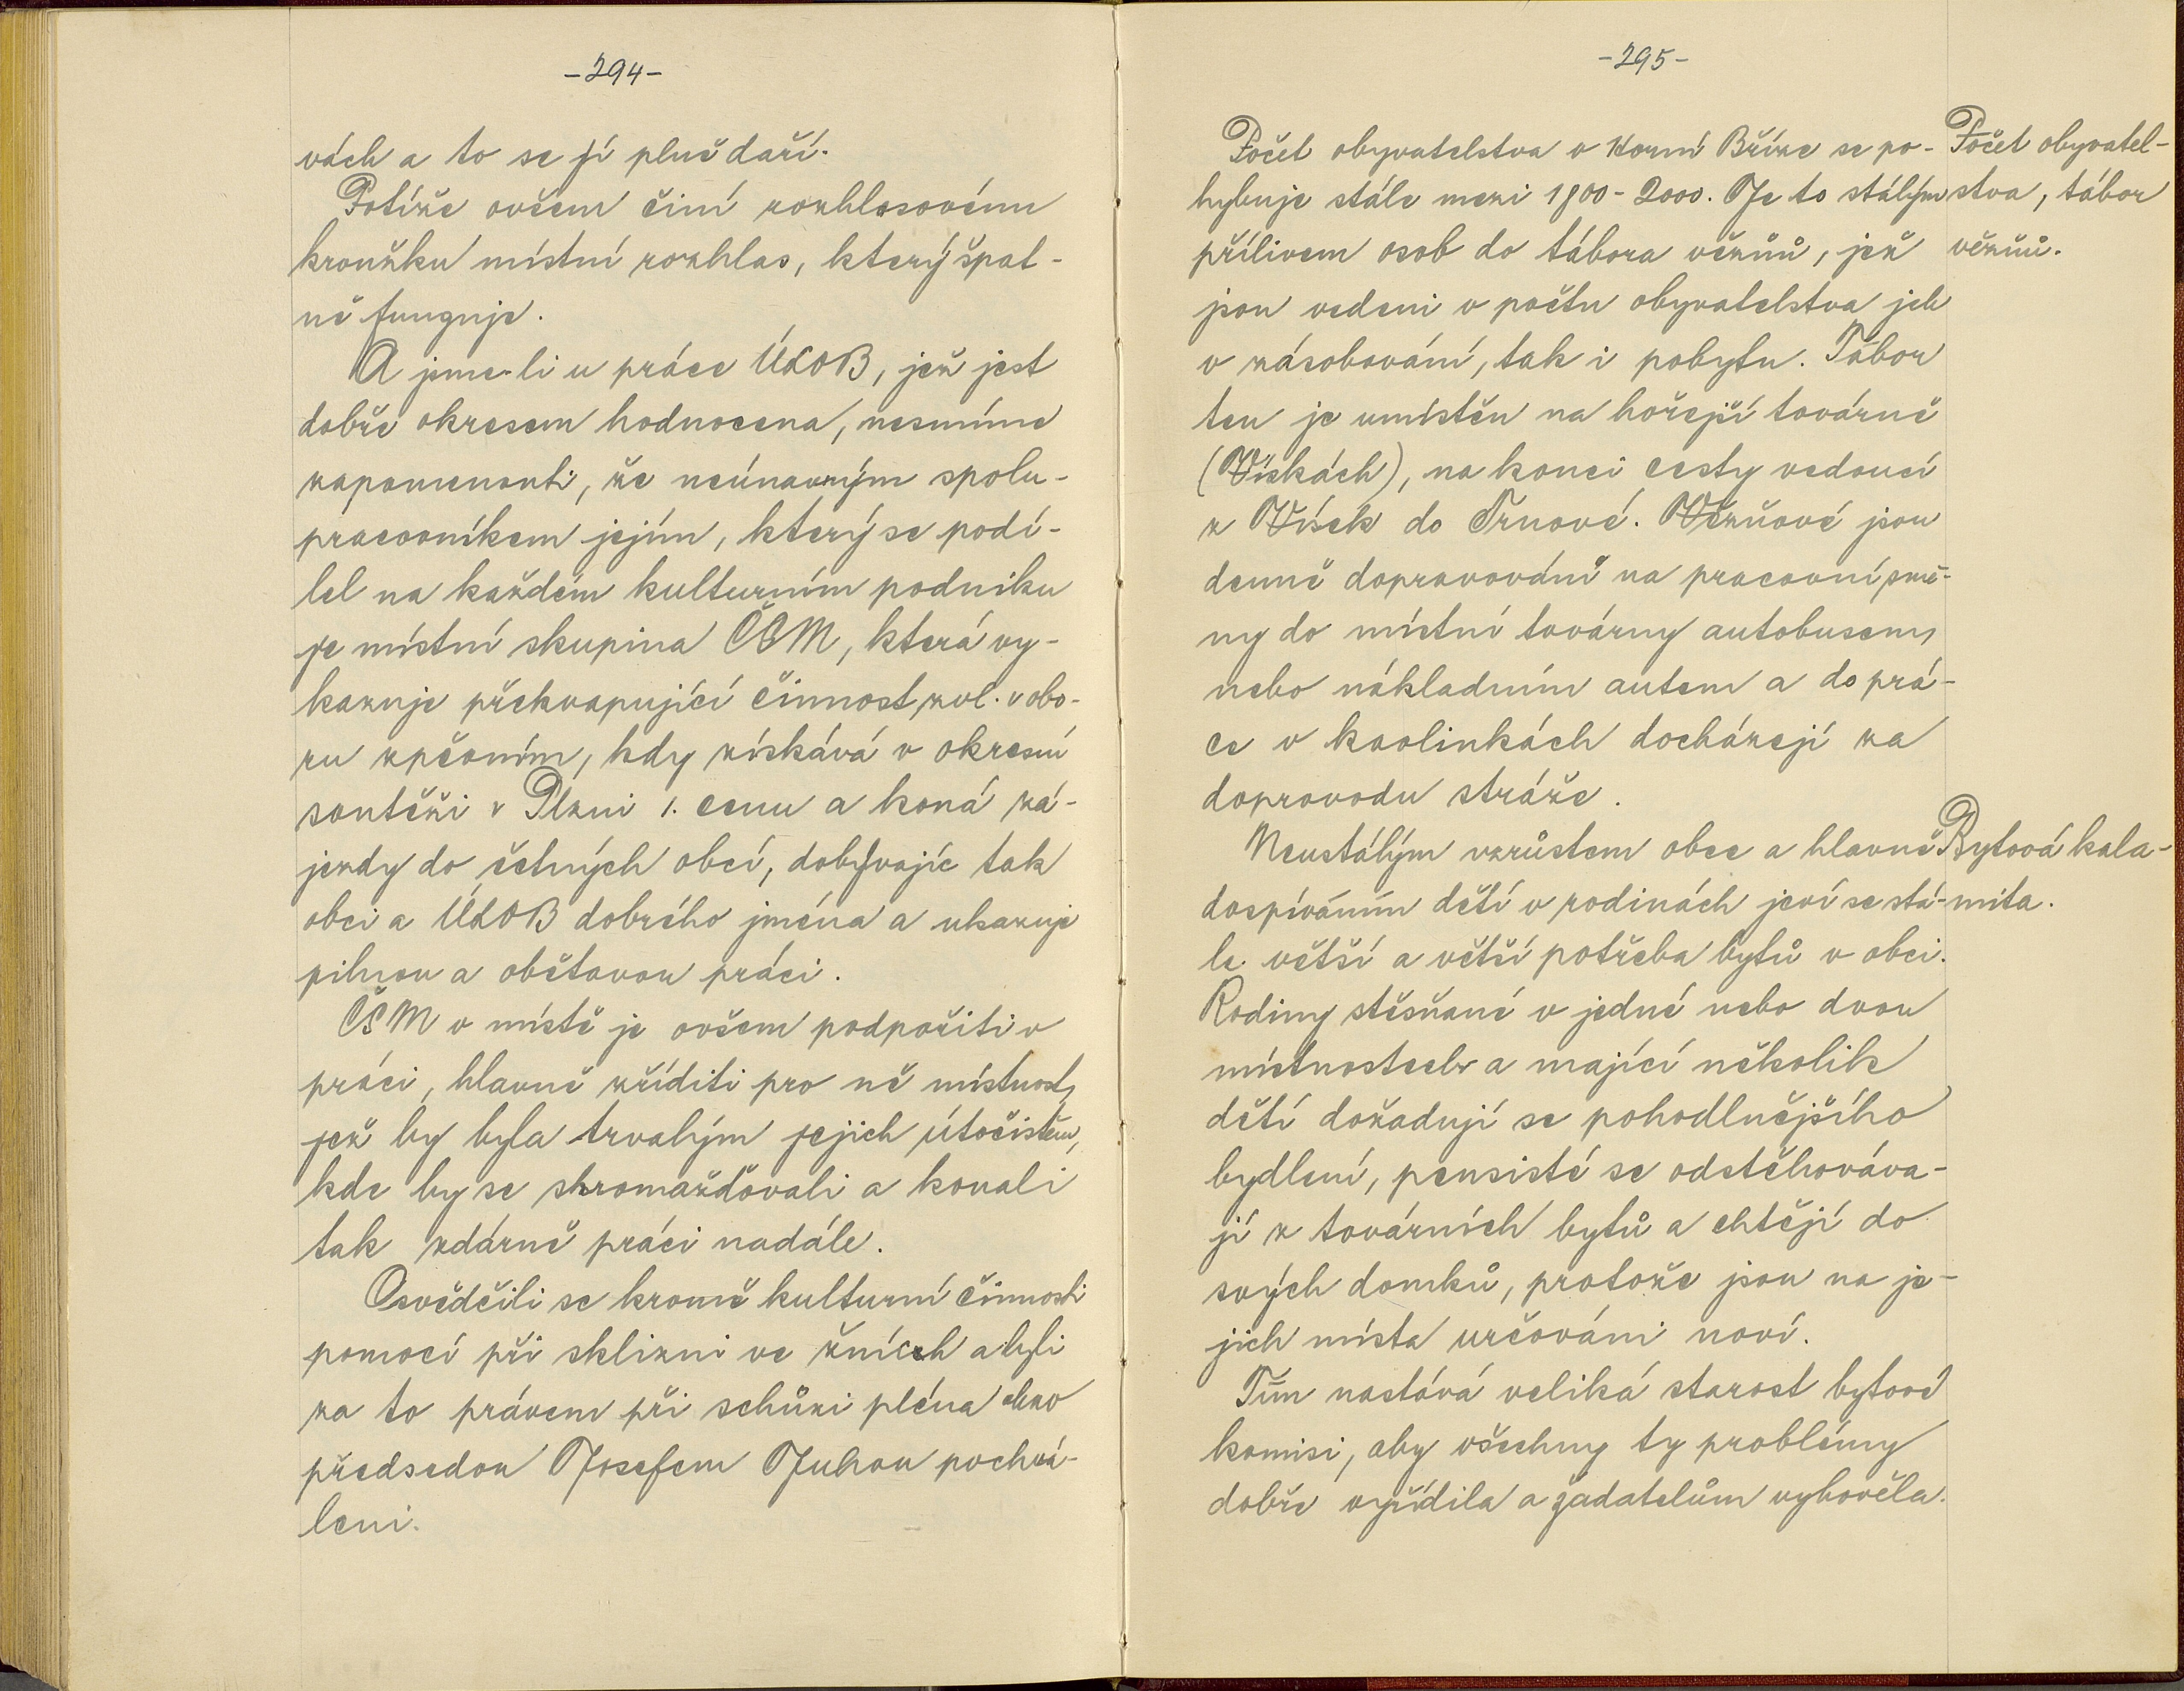 -294-
vách a to se jí plně daří.
Potíže ovšem činí rozhlasovému
kroužku místní rozhlas, který špat-
ně funguje.
A jsme-li u práce ÚLOB, jež jest
dobře okresem hodnocena, nesmíme
zapomenouti, že neúnavným spolu-
pracovníkem jejím, který se podí-
lel na každém kulturním podniku
je místní skupina ČSM, která vy-
kazuje překvapující činnost, zvl. v obo-
ru zpěvním, kdy získává v okresní
soutěži v Plzni 1. cenu a koná zá-
jezdy do četných obcí, dobývajíc tak
obci a ÚLOB dobrého jména a ukazuje
pilnou a obětavou práci.
ČSM v místě je ovšem podpořiti v
práci, hlavně zříditi pro ně místnost,
jež by byla trvalým jejich útočištěm,
kde by se shromažďovali a konali
tak zdárně práci nadále.
Osvědčili se kromě kulturní činnosti
pomocí při sklizni ve žních a byli
za to právem při schůzi pléna
předsedou Josefem Juhou pochvá-
leni.
-295-
Počet obyvatelstva v Horní Bříze se po-
hybuje stále mezi 1800-2000. Je to stálým
přílivem osob do tábora vězňů, jež
jsou vedeni v počtu obyvatelstva jak
v zásobování, tak i pobytu. Tábor
ten je umístěn na hořejší továrně
(Vískách), na konci cesty vedoucí
z Vísek do Trnové. Vězňové jsou
denně dopravováni na pracovní smě-
ny do místní továrny autobusem,
nebo nákladním autem a do prá-
ce v kaolinkách docházejí za
doprovodu stráže.
Neustálým vzrůstem obce a hlavně
dospíváním dětí v rodinách jeví se stá-
le větší a větší potřeba bytů v obci.
Rodiny stěsňané v jedné nebo dvou
místnostech a mající několik
dětí dožadují se pohodlnějšího
bydlení, pensisté se odstěhováva-
jí z továrních bytů a chtějí do
svých domků, protože jsou na je-
jich místa určováni noví.
Tím nastává veliká starost bytové
komisi, aby všechny ty problémy
dobře vyřídila a žadatelům vyhověla.
Počet obyvatel-
stva, tábor
vězňů.
Bytová kala-
mita.